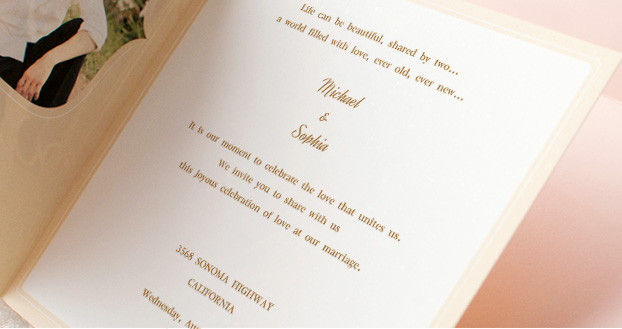 Life can be beautiful, shared by two...
a world filled with love, ever old, ever new...
Michael
&
Sophia
It is our moment to celebrate the love that unites us.
We invite you to share with us
this joyous celebration of love at our marriage.
3568 SONOMA HIGHWAY
CALIFORNIA
Wednesday,